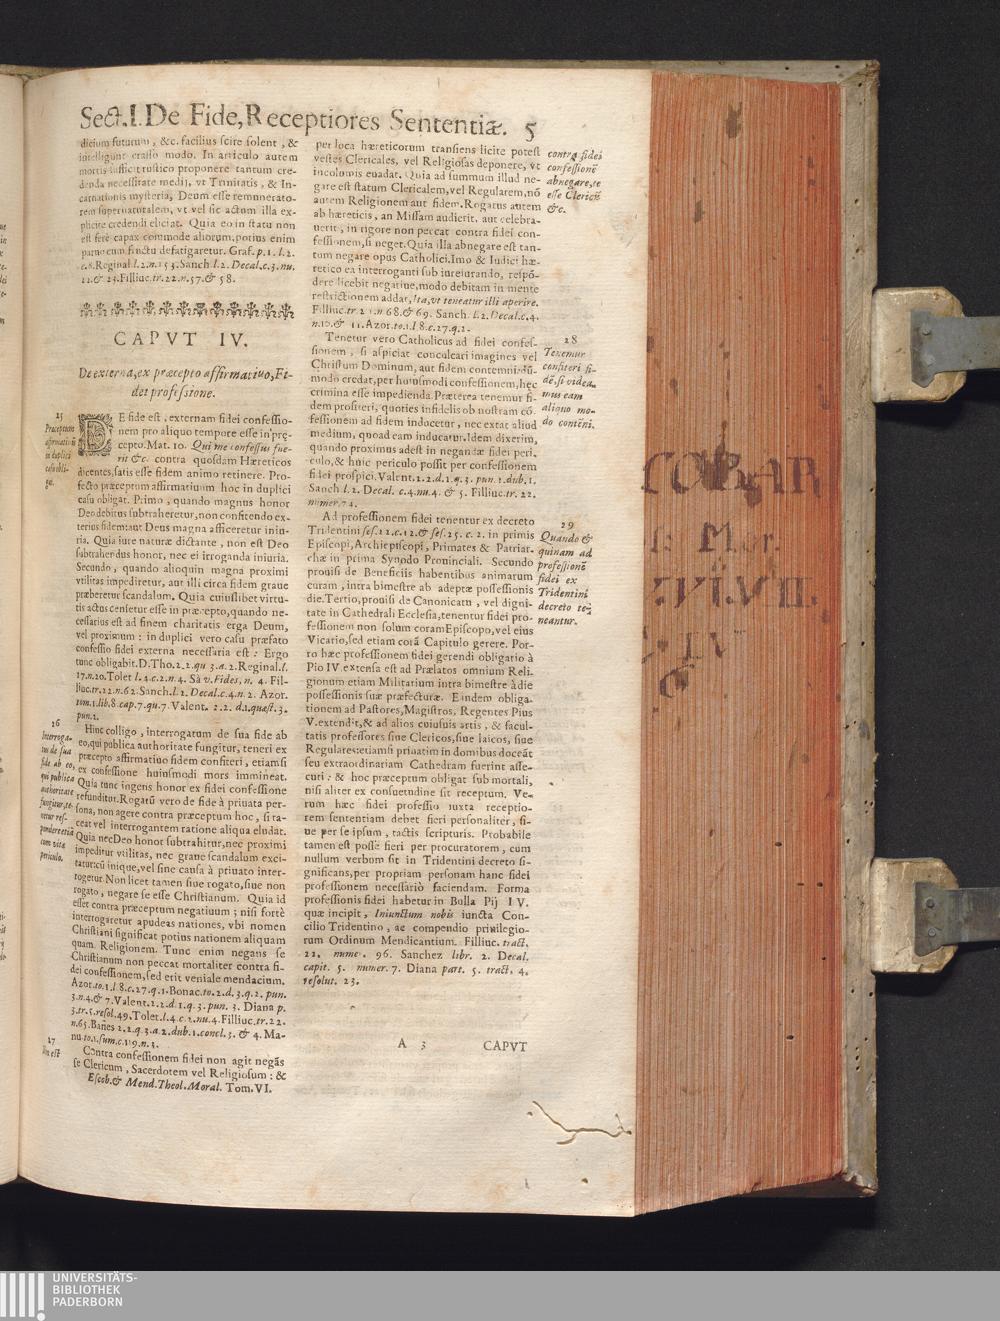 Sect. I. De Fide, Receptiores Sententiæ. 5
dicium futurum, &c. facilius scire solent, &
intelligunt crasso modo. In articulo autem
mortis sufficit rustico proponere tantum cre-
denda necessitate medij, vt Trinitatis, & In-
carnationis mysteria, Deum esse remunerato-
rem supernaturalem, vt vel sic actum illa ex-
plicite credendi eliciat. Quia eo in statu non
est ferè capax commode aliorum, potius enim
parno cum fructu defatigaretur. Graf. p. 1. l. 2.
c. 8. Reginal. l. 2. n. 153. Sanch. l. 2. Decal. c. 3. nu.
22. & 23. Filliuc. tr. 22. n. 57. & 58.
CAPVT IV.
De externa, ex præcepto affirmatiuo, Fi-
dei professione.
25
Præceptum
affirmatiuū
in duplici
casu obli-
gat.
DE fide est, externam fidei confessio-
nem pro aliquo tempore esse in præ-
cepto. Mat. 10. Qui me confessus fue-
rit &c. contra quosdam Hæreticos
dicentes, satis esse fidem animo retinere. Pro-
fecto præceptum affirmatiuum hoc in duplici
casu obligat. Primo, quando magnus honor
Deo debitus subtraheretur, non confitendo ex-
terius fidem: aut Deus magna afficeretur iniu-
ria. Quia iure naturæ dictante, non est Deo
subtrahendus honor, nec ei irroganda iniuria.
Secundo, quando alioquin magna proximi
vtilitas impediretur, aut illi circa fidem graue
præberetur scandalum. Quia cuiuslibet virtu-
tis actus censetur esse in præcepto, quando ne-
cessarius est ad finem charitatis erga Deum,
vel proximum: in duplici vero casu præfato
confessio fidei externa necessaria est: Ergo
tunc obligabit. D. Tho. 2. 2. qu 3. a. 2. Reginal. l.
17. n. 20. Tolet l. 4. c. 2. n. 4. Sà v. Fides, n. 4. Fil-
liuc. tr. 22. n. 62. Sanch. l. 2. Decal. c. 4. n. 2. Azor.
tom. 1. lib. 8. cap. 7. qu. 7. Valent. 2. 2. d. 1. quæst. 3.
pun. 2.
26
Interroga-
tus de sua
fide ab eo,
qui publica
authoritate
fungitur, te-
netur res-
pondere etiā
cum vitæ
periculo.
Hinc colligo, interrogatum de sua fide ab
eo, qui publica authoritate fungitur, teneri ex
præcepto affirmatiuo fidem confiteri, etiamsi
ex confessione huiusmodi mors immineat.
Quia tunc ingens honor ex fidei confessione
refunditur. Rogatū vero de fide à priuata per-
sona, non agere contra præceptum hoc, si ta-
ceat vel interrogantem ratione aliqua eludat.
Quia nec Deo honor subtrahitur, nec proximi
impeditur vtilitas, nec graue scandalum exci-
tatur: cū inique, vel sine causa à priuato inter-
rogetur. Non licet tamen siue rogato, siue non
rogato, negare se esse Christianum. Quia id
esset contra præceptum negatiuum; nisi fortè
interrogaretur apud eas nationes, vbi nomen
Christiani significat potius nationem aliquam
quam Religionem. Tunc enim negans se
Christianum non peccat mortaliter contra fi-
dei confessionem, sed erit veniale mendacium.
Azor. to. 1. l. 8. c. 27. q. 1. Bonac. to. 2. d. 3. q. 2. pun.
3. n. 4. & 7. Valent. 2. 2. d. 1. q. 3. pun. 3. Diana p.
3. tr. 5. resol. 49. Tolet. l. 4. c. 2. nu. 4. Filliuc. tr. 22.
n. 65. Bañes 2. 2. q. 3. a. 2. dub. 1. concl. 3. & 4. Ma-
nu. to. 1. sum. c. 119. n. 3.
27
Non est
Contra confessionem fidei non agit negās
se Clericum, Sacerdotem vel Religiosum: &
Escob. & Mend. Theol. Moral. Tom. VI.
per loca hæreticorum transiens licite potest
vestes Clericales, vel Religiosas deponere, vt
incolumis euadat. Quia ad summum illud ne-
gare est statum Clericalem, vel Regularem, nō
autem Religionem aut fidem. Rogatus autem
ab hæreticis, an Missam audierit, aut celebra-
uerit, in rigore non peccat contra fidei con-
fessionem, si neget. Quia illa abnegare est tan-
tum negare opus Catholici. Imo & Iudici hæ-
retico ea interroganti sub iureiurando, respō-
dere licebit negatiue, modo debitam in mente
restrictionem addat, Ita, vt teneatur illi aperire.
Filliuc. tr. 22. n. 68. & 69. Sanch. l. 2. Decal. c. 4.
n. 10. & 11. Azor. to. 1. l 8. c. 27. q. 2.
contra fidei
confessionē
abnegare, se
esse Clericū
&c.
Tenetur vero Catholicus ad fidei confes-
sionem, si aspiciat conculcari imagines vel
Christum Dominum, aut fidem contemni: dū-
modo credat, per huiusmodi confessionem, hęc
crimina esse impedienda. Præterea tenemur fi-
dem profiteri, quoties infidelis ob nostram cō-
fessionem ad fidem inducetur, nec extat aliud
medium, quo ad eam inducatur. Idem dixerim,
quando proximus adest in negandæ fidei peri-
culo, & huic periculo possit per confessionem
fidei prospici. Valent. 2. 2. d. 1. q. 3. pun. 2. dub. 1.
Sanch. l. 2. Decal. c. 4. nu. 4. & 5. Filliuc. tr. 22.
numer. 74.
28
Tenemur
confiteri fi-
dē, si videa-
mus eam
aliquo mo-
do contēni.
Ad professionem fidei tenentur ex decreto
Tridentini ses. 22. c. 12. & ses. 25. c. 2. in primis
Episcopi, Archiepiscopi, Primates & Patriar-
chæ in prima Synodo Prouinciali. Secundo
prouisi de Beneficiis habentibus animarum
curam, intra bimestre ab adeptæ possessionis
die. Tertio, prouisi de Canonicatu, vel digni-
tate in Cathedrali Ecclesia, tenentur fidei pro-
fessionem non solum coram Episcopo, vel eius
Vicario, sed etiam corā Capitulo gerere. Por-
ro hæc professionem fidei gerendi obligatio à
Pio IV. extensa est ad Prælatos omnium Reli-
gionum etiam Militarium intra bimestre à die
possessionis suæ præfecturæ. Eindem obliga-
tionem ad Pastores, Magistros, Regentes Pius
V. extendit, & ad alios cuiusuis artis, & facul-
tatis professores siue Clericos, siue laicos, siue
Regulares: etiamsi priuatim in domibus doceāt
seu extraordinariam Cathedram fuerint asse-
cuti: & hoc præceptum obligat sub mortali,
nisi aliter ex consuetudine sit receptum. Ve-
rum hæc fidei professio iuxta receptio-
rem sententiam debet fieri personaliter, si-
ue per se ipsum, tactis scripturis. Probabile
tamen est posse fieri per procuratorem, cum
nullum verbum sit in Tridentini decreto si-
gnificans, per propriam personam hanc fidei
professionem necessariò faciendam. Forma
professionis fidei habetur in Bulla Pij IV.
quæ incipit, Iniunctum nobis iuncta Con-
cilio Tridentino, ac compendio priuilegio-
rum Ordinum Mendicantium. Filliuc. tract.
22. nume. 96. Sanchez libr. 2. Decal.
capit. 5. numer. 7. Diana part. 5. tract. 4.
resolut. 23.
29
Quando &
quinam ad
professionē
fidei ex
Tridentini
decreto te-
neantur.
A 3 CAPVT
COBAR
Mor.
UNIVERSITÄTS-
BIBLIOTHEK
PADERBORN